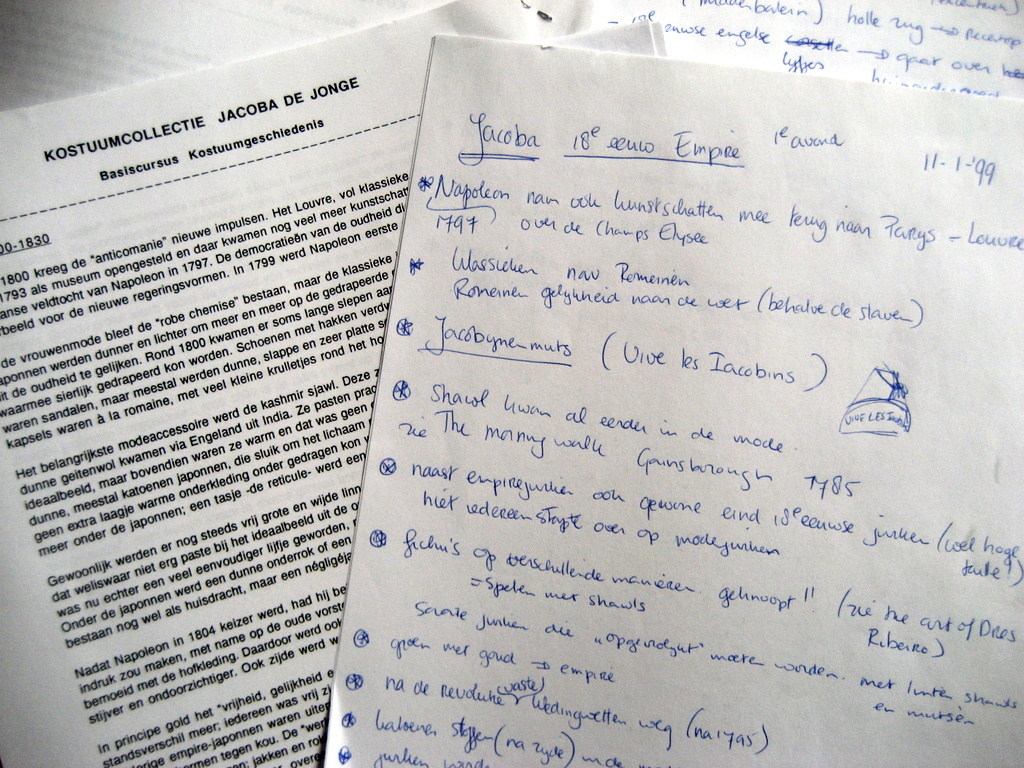 (middenbalein) holle rug → decentop
engelse → gaat over
lijfjes
KOSTUUMCOLLECTIE JACOBA DE JONGE
Basiscursus Kostuumgeschiedenis
00-1830
1800 kreeg de "anticomanie" nieuwe impulsen. Het Louvre, vol klassieke
1793 als museum opengesteld en daar kwamen nog veel meer kunstschat
anse veldtocht van Napoleon in 1797. De democratieën van de oudheid di
beeld voor de nieuwe regeringsvormen. In 1799 werd Napoleon eerste
de vrouwenmode bleef de "robe chemise" bestaan, maar de klassieke
aponnen werden dunner en lichter om meer en meer op de gedrapeerde
it de oudheid te gelijken. Rond 1800 kwamen er soms lange slepen aan
waarmee sierlijk gedrapeerd kon worden. Schoenen met hakken verdw
waren sandalen, maar meestal werden dunne, slappe en zeer platte s
kapsels waren à la romaine, met veel kleine krulletjes rond het ho
Het belangrijkste modeaccessoire werd de kashmir sjawl. Deze
dunne geitenwol kwamen via Engeland uit India. Ze pasten prac
ideaalbeeld, maar bovendien waren ze warm en dat was geen
dunne, meestal katoenen japonnen, die sluik om het lichaam
geen extra laagje warme onderkleding onder gedragen kon
meer onder de japonnen; een tasje -de reticule- werd een
Gewoonlijk werden er nog steeds vrij grote en wijde linn
dat weliswaar niet erg paste bij het ideaalbeeld uit de o
was nu echter een veel eenvoudiger lijfje geworden,
Onder de japonnen werd een dunne onderrok of een
bestaan nog wel als huisdracht, maar een négligéja
Nadat Napoleon in 1804 keizer werd, had hij be
indruk zou maken, met name op de oude vorst
bemoeid met de hofkleding. Daardoor werd oo
stijver en ondoorzichtiger. Ook zijde werd w
In principe gold het "vrijheid, gelijkheid e
standsverschil meer; iedereen was vrij z
orige empire-japonnen waren uiter
ormen tegen kou. De "wer
jakken en ro
overe
Jacoba 18e eeuw Empire 1e avond
11-1-'99
Napoleon nam ook kunstschatten mee terug naar Parijs - Louvre
1797 over de Champs Elysee
Klassieken nav Romeinen
Romeinen gelijkheid naar de wet (behalve de slaven)
Jacobijnenmuts (Vive les Jacobins)
VIVE LES
Shawl kwam al eerder in de mode.
zie The morning walk Gainsborough 1785
naast empirejurken ook gewone eind 18e eeuwse jurken (wel hoge
niet iedereen stapte over op modejurken taille!)
fichu's op verschillende manieren geknoopt!! (zie the art of Dress
= spelen met shawls Ribeiro)
Saaie jurken die "opgevrolijkt" moeten worden. met linten shawls
en mutsen
groen met goud → empire
na de revolutie (vaste) kledingwetten weg (na 1795)
katoenen stoffen (na zijde) in de
jurken